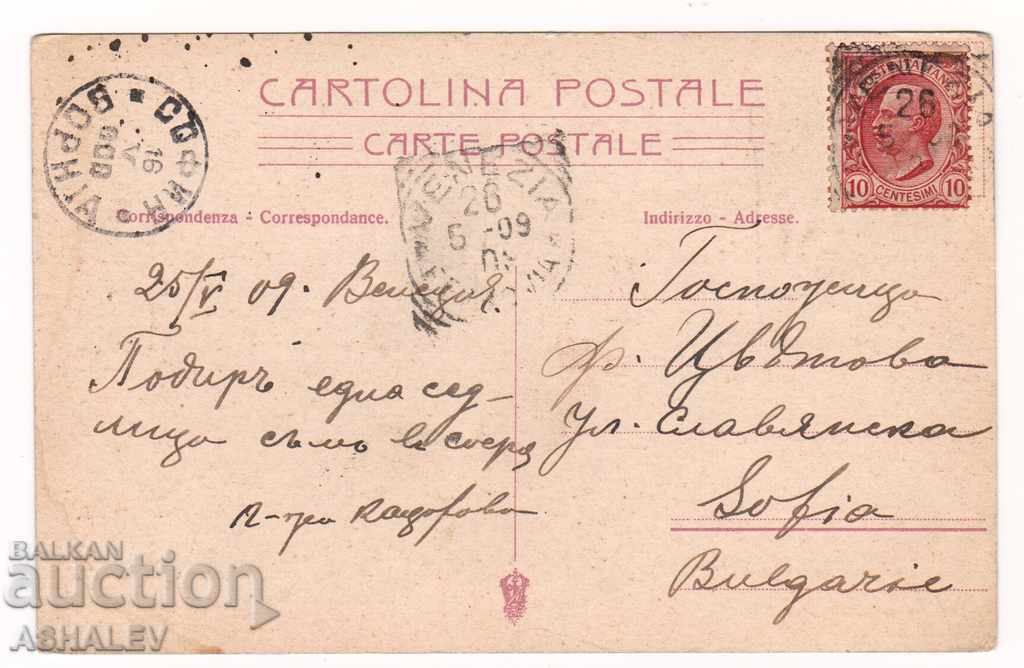 CARTOLINA POSTALE
CARTE POSTALE
Corrispondenza - Correspondance.
Indirizzo - Adresse.
СОФИЯ
16
V
909
VENEZIA
26
5 -09
POSTE ITALIANE
26
10 CENTESIMI 10
25/V 09. Венеция
Подиръ една сед-
мица съмъ в
Госпожица
Цвѣтова
ул. Славянска
Sofia
Bulgarie
BALKAN
auction
ASHALEV